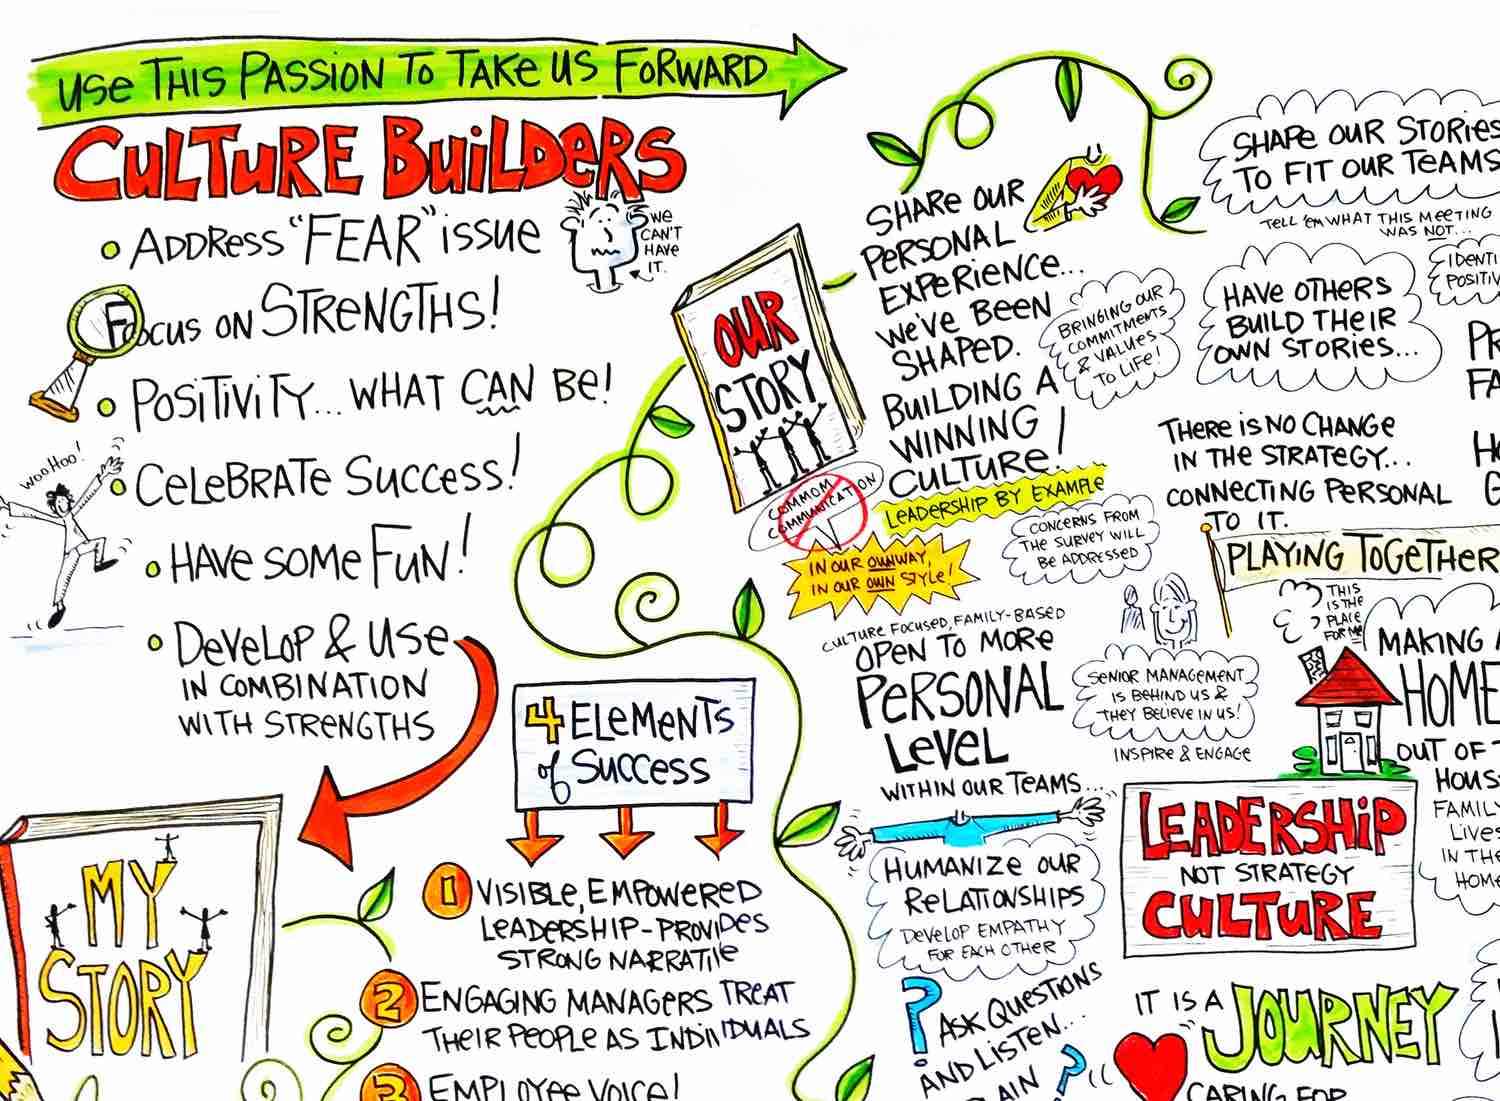 USE THIS PASSION TO TAKE US FORWARD
CULTURE BUILDERS
• ADDRESS "FEAR" ISSUE
WE
CAN'T
HAVE
IT.
FOCUS ON STRENGTHS!
• POSITIVITY... WHAT CAN BE!
WOO HOO!
• CELEBRATE SUCCESS!
• HAVE SOME FUN!
• DEVELOP & USE
IN COMBINATION
WITH STRENGTHS
MY
STORY
4 ELEMENTS
of SUCCESS
1 VISIBLE, EMPOWERED
LEADERSHIP-PROVIDES
STRONG NARRATIVE
2 ENGAGING MANAGERS TREAT
THEIR PEOPLE AS INDIVIDUALS
3 EMPLOYEE VOICE!
OUR
STORY
COMMOM
COMMUNICATION
IN OUR OWN WAY,
IN OUR OWN STYLE!
SHARE OUR
PERSONAL
EXPERIENCE...
WE'VE BEEN
SHAPED.
BUILDING A
WINNING
CULTURE!
LEADERSHIP BY EXAMPLE
BRINGING OUR
COMMITMENTS
& VALUES
TO LIFE!
CONCERNS FROM
THE SURVEY WILL
BE ADDRESSED
CULTURE FOCUSED, FAMILY-BASED
OPEN TO MORE
PERSONAL
LEVEL
WITHIN OUR TEAMS...
HUMANIZE OUR
RELATIONSHIPS
DEVELOP EMPATHY
FOR EACH OTHER
? ASK QUESTIONS
AND LISTEN...
AND LISTEN
AIN ?
SHAPE OUR STORIES
TO FIT OUR TEAMS
TELL 'EM WHAT THIS MEETING
WAS NOT...
HAVE OTHERS
BUILD THEIR
OWN STORIES...
IDENTI
POSITIV
PR
FA
HO
G
THERE IS NO CHANGE
IN THE STRATEGY...
CONNECTING PERSONAL
TO IT.
PLAYING TOGETHER
THIS
IS THE
PLACE
FOR ME
SENIOR MANAGEMENT
IS BEHIND US &
THEY BELIEVE IN US!
INSPIRE & ENGAGE
MAKING A
HOME
OUT OF
HOUS
FAMILY
LIVES
IN THE
HOME
LEADERSHIP
NOT STRATEGY
CULTURE
IT IS A JOURNEY
CARING FOR